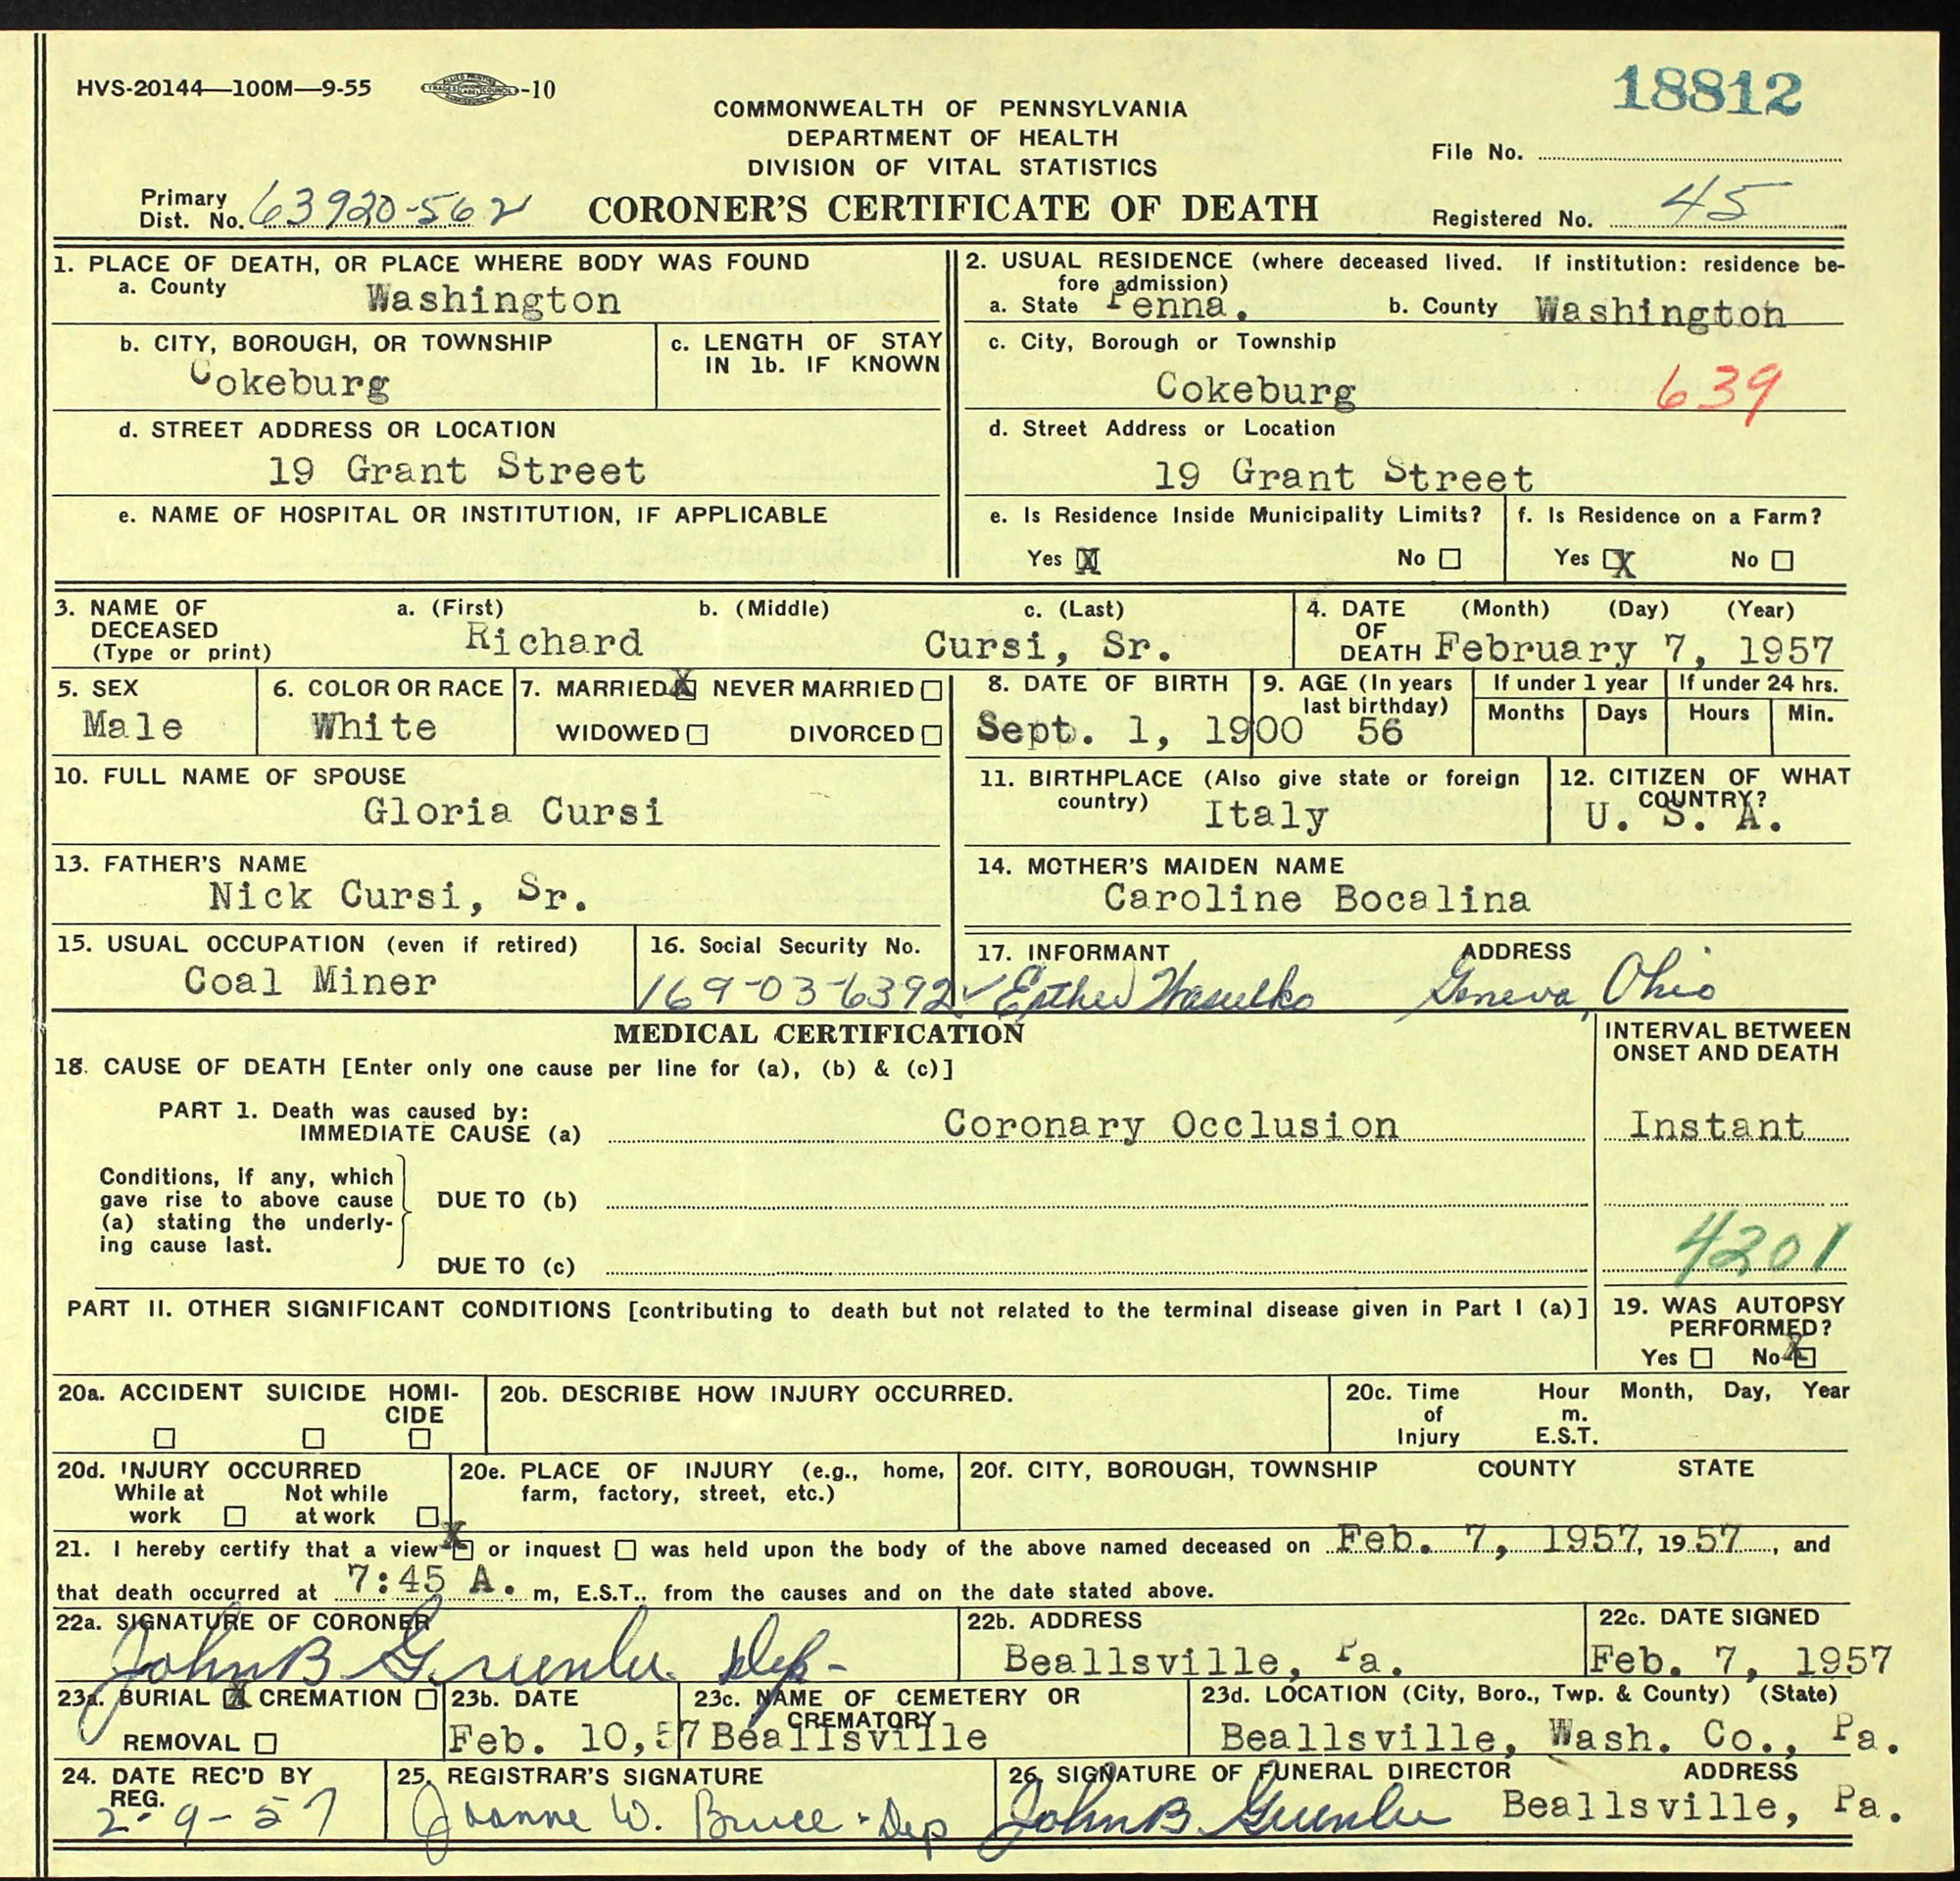 HVS-20144—100M—9-55 -10
18812
COMMONWEALTH OF PENNSYLVANIA
DEPARTMENT OF HEALTH
DIVISION OF VITAL STATISTICS
File No.
Primary
Dist. No. 63920-562
CORONER'S CERTIFICATE OF DEATH
Registered No. 45
1. PLACE OF DEATH, OR PLACE WHERE BODY WAS FOUND
a. County Washington
2. USUAL RESIDENCE (where deceased lived. If institution: residence be-
fore admission)
a. State Penna. b. County Washington
b. CITY, BOROUGH, OR TOWNSHIP
Cokeburg
c. LENGTH OF STAY
IN 1b. IF KNOWN
c. City, Borough or Township
Cokeburg 639
d. STREET ADDRESS OR LOCATION
19 Grant Street
d. Street Address or Location
19 Grant Street
e. NAME OF HOSPITAL OR INSTITUTION, IF APPLICABLE
e. Is Residence Inside Municipality Limits?
Yes X No
f. Is Residence on a Farm?
Yes X No
3. NAME OF
DECEASED
(Type or print)
a. (First) b. (Middle) c. (Last)
Richard Cursi, Sr.
4. DATE
OF
DEATH
(Month) (Day) (Year)
February 7, 1957
5. SEX
Male
6. COLOR OR RACE
White
7. MARRIED X NEVER MARRIED
WIDOWED DIVORCED
8. DATE OF BIRTH
Sept. 1, 1900
9. AGE (In years
last birthday)
56
If under 1 year
Months Days
If under 24 hrs.
Hours Min.
10. FULL NAME OF SPOUSE
Gloria Cursi
11. BIRTHPLACE (Also give state or foreign
country) Italy
12. CITIZEN OF WHAT
COUNTRY?
U. S. A.
13. FATHER'S NAME
Nick Cursi, Sr.
14. MOTHER'S MAIDEN NAME
Caroline Bocalina
15. USUAL OCCUPATION (even if retired)
Coal Miner
16. Social Security No.
169-03-6392
17. INFORMANT ADDRESS
Esther Wasulko Geneva, Ohio
MEDICAL CERTIFICATION
INTERVAL BETWEEN
ONSET AND DEATH
18. CAUSE OF DEATH [Enter only one cause per line for (a), (b) & (c)]
PART 1. Death was caused by:
IMMEDIATE CAUSE (a) Coronary Occlusion Instant
Conditions, if any, which
gave rise to above cause
(a) stating the underly-
ing cause last.
DUE TO (b)
DUE TO (c)
4201
PART II. OTHER SIGNIFICANT CONDITIONS [contributing to death but not related to the terminal disease given in Part I (a)]
19. WAS AUTOPSY
PERFORMED?
Yes No X
20a. ACCIDENT SUICIDE HOMI-
CIDE
20b. DESCRIBE HOW INJURY OCCURRED.
20c. Time
of
Injury
Hour
m.
E.S.T.
Month, Day, Year
20d. INJURY OCCURRED
While at
work
Not while
at work
20e. PLACE OF INJURY (e.g., home,
farm, factory, street, etc.)
20f. CITY, BOROUGH, TOWNSHIP COUNTY STATE
21. I hereby certify that a view X or inquest was held upon the body of the above named deceased on Feb. 7, 1957, 19 57, and
that death occurred at 7:45 A. m, E.S.T., from the causes and on the date stated above.
22a. SIGNATURE OF CORONER
John B Greenlee Dep-
22b. ADDRESS
Beallsville, Pa.
22c. DATE SIGNED
Feb. 7, 1957
23a. BURIAL X CREMATION
REMOVAL
23b. DATE
Feb. 10, 57
23c. NAME OF CEMETERY OR
CREMATORY
Beallsville
23d. LOCATION (City, Boro., Twp. & County) (State)
Beallsville, Wash. Co., Pa.
24. DATE REC'D BY
REG.
2-9-57
25. REGISTRAR'S SIGNATURE
Joanne W. Bruce - Dep
26. SIGNATURE OF FUNERAL DIRECTOR ADDRESS
John B. Greenlee Beallsville, Pa.